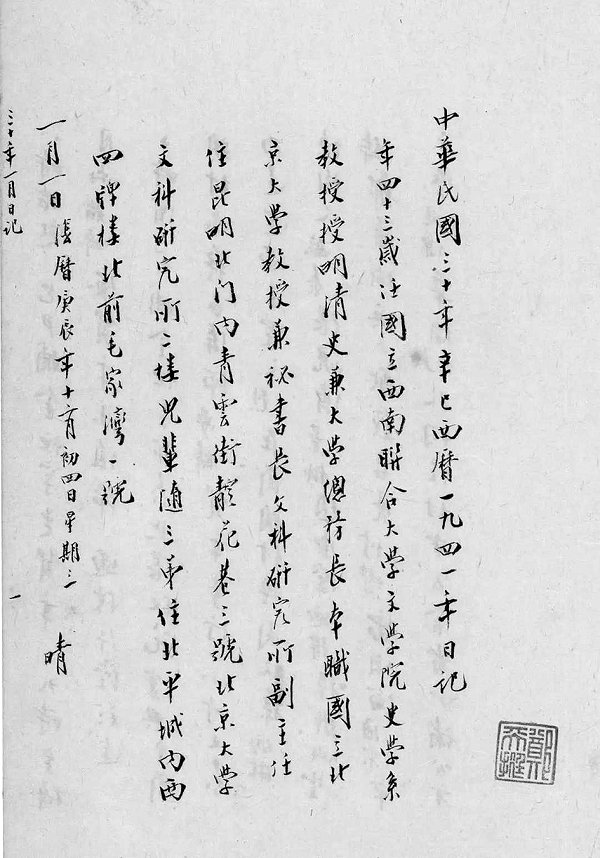 中華民國三十年辛巳西曆一九四一年日记
年四十三歲任國立西南聯合大學文學院史學系
教授授明清史兼大学總務長本職國立北
京大學教授兼祕書長文科研究所副主任
住昆明北门内青雲街靛花巷三號北京大學
文科研究所二樓兒輩随三弟住北平城内西
四牌樓北前毛家灣一號
一月一日 舊曆庚辰年十二月初四日星期三 晴
三十年一月日记 一
鄭天挺